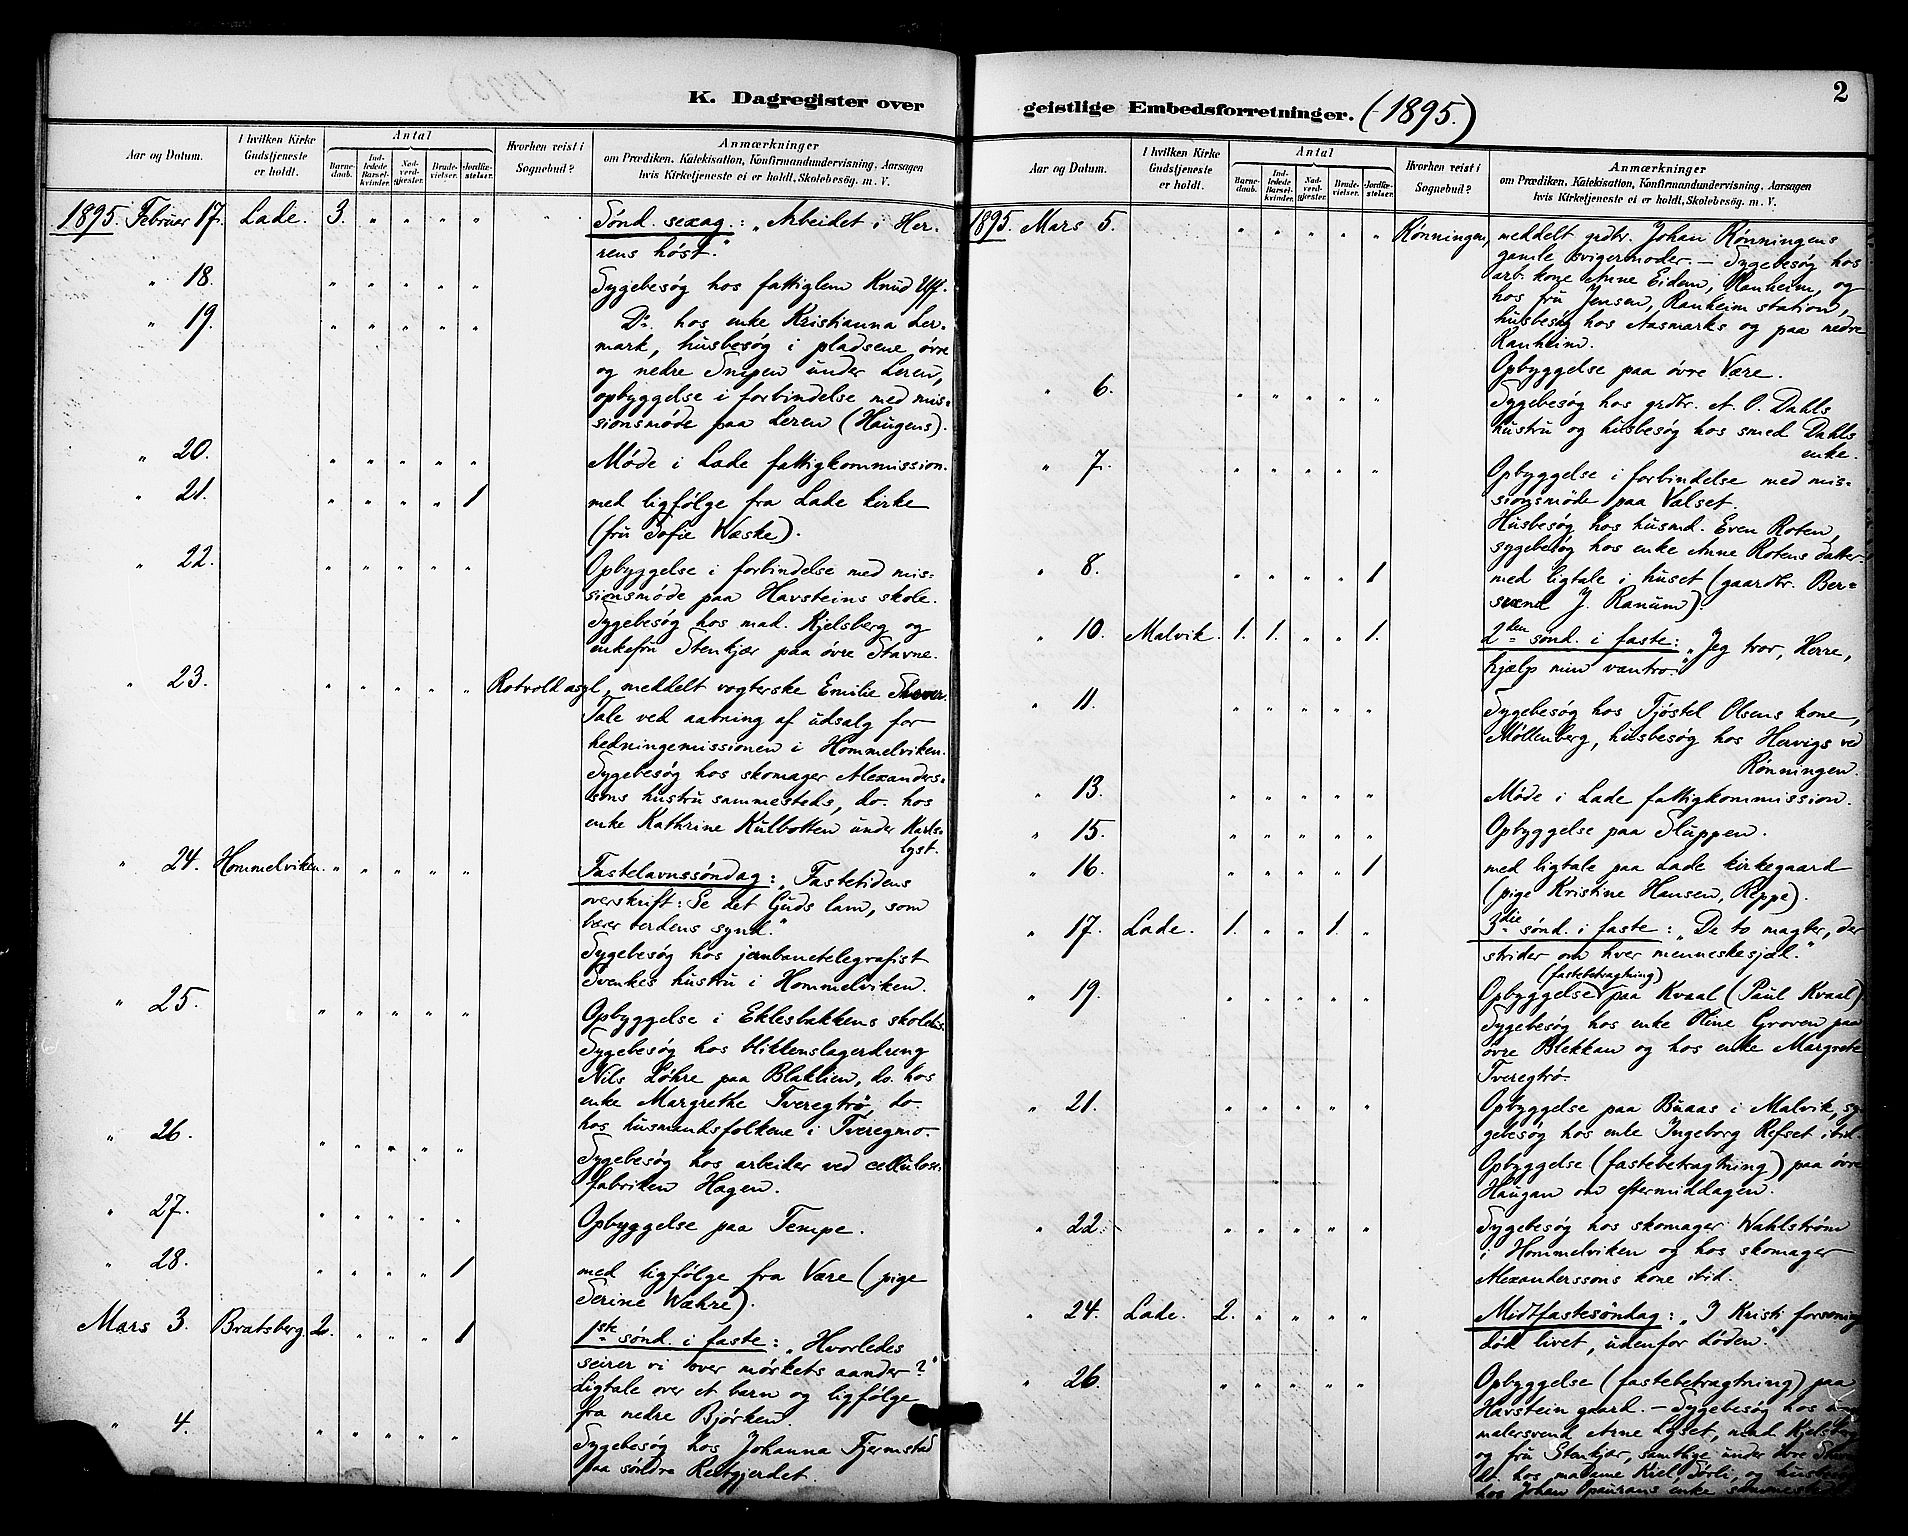 K. Dagregister over
Aar og Datum. I hvilken Kirke Gudstjeneste er holdt. Antal Barnedaab. Indledede Barselkvinder. Nadverdgjester. Brudevielser. Jordfæstelser. Hvorhen reist i Sognebud? Anmærkninger
om Prædiken, Katekisation, Konfirmandundervisning, Aarsagen
hvis Kirketjeneste ei er holdt, Skolebesög. m. V.
1895. Februer 17. Lade. 3. " " " " " Sønd. sexag.: „Arbeidet i Her-
rens höst."
" 18. " " " " " Sygebesøg hos fattiglem Knud Uff.
" 19. " " " " " Do. hos enke Kristianna Ler-
mark, husbesøg i pladsene øvre
og nedre Snipen under Leren,
opbyggelse i forbindelse med mis-
sionsmøde paa Leren (Haugens).
" 20. " " " " " Møde i Lade fattigkommission.
" 21. " " " " 1 med ligfölge fra Lade kirke
(fru Sofie Wæske).
" 22. " " " " " Opbyggelse i forbindelse med mis-
sionsmöde paa Havsteins skole.
Sygebesøg hos mad. Kjelsberg og
enkefru Stenkjær paa øvre Stavne.
" 23. " " " " " Rotvold asyl, meddelt vogterske Emilie
Tale ved aabning af udsalg for
hedningemissionen i Hommelviken.
Sygebesøg hos skomager Alexanders-
sons hustru sammesteds, do. hos
enke Kathrine Kulbotten under Karls-
lyst.
" 24. Hommelviken. " " " " " Fastelavnssöndag: „Fastetidens
overskrift: Se det Guds lam, som
bærer verdens synd."
Sygebesøg hos jernbanetelegrafist
Svenkes hustru i Hommelviken.
" 25. " " " " " Opbyggelse i Eklesbakkens skole.
Sygebesøg hos blikkenslagerdreng
Nils Løhre paa Blaklien, do. hos
enke Margrethe Tveregtrö, do.
hos husmandsfolkene i Tveregmo.
" 26. " " " " " Sygebesøg hos arbeider ved cellulose-
fabriken Hagen.
" 27. " " " " " Opbyggelse paa Tempe.
" 28. " " " " 1 med ligfölge fra Være (pige
Serine Wæhre).
Mars 3. Bratsberg. 2. " " " 1 1ste sønd. i faste: „Hvorledes
seirer vi over mørkets aander?"
Ligtale over et barn og ligfölge
fra nedre Bjørken.
" 4. " " " " " Sygebesøg hos Johanna Fjermstad
paa søndre Reitgjerdet.
geistlige Embedsforretninger. (1895.)
2
Aar og Datum. I hvilken Kirke Gudstjeneste er holdt. Antal Barnedaab. Indledede Barselkvinder. Nadverdgjester. Brudevielser. Jordfæstelser. Hvorhen reist i Sognebud? Anmærkninger
om Prædiken, Katekisation, Konfirmandundervisning, Aarsagen
hvis Kirketjeneste ei er holdt, Skolebesög. m. V.
1895. Mars 5. " " " " " Rønningen, meddelt grdbr. Johan Rønningens
gamle svigermoder. — Sygebesøg hos
arb. kone Anne Eidem, Ranheim, og
hos fru Jensen, Ranheim station,
husbesøg hos Aasmarks og paa nedre
Ranheim.
Opbyggelse paa övre Være.
" 6. " " " " " Sygebesøg hos grdbr. A. O. Dahls
hustru og husbesøg hos smed Dahls
enke.
" 7. " " " " " Opbyggelse i forbindelse med mis-
sionsmöde paa Valset.
Husbesøg hos husmd. Even Roten,
sygebesøg hos enke Anne Rotens datter
" 8. " " " " 1 med ligtale i huset (gaardbr. Ber-
svend J. Ranum).
" 10. Malvik. 1. 1. " " 1. 2den sönd. i faste: „Jeg tror, Herre,
hjælp min vantro."
" 11. " " " " " Sygebesøg hos Tjøstel Olsens kone,
Möllenberg, husbesøg hos Hervigs ved
Rønningen.
" 13. " " " " " Møde i Lade fattigkommission.
" 15. " " " " " Opbyggelse paa Sluppen.
" 16. " " " " 1 med ligtale paa Lade kirkegaard
(pige Kristine Hansen, Reppe).
" 17. Lade. 1. " " 1. " 3die sønd. i faste: „De to magter, der
strider om hver menneskesjæl."
(fastebetragtning)
" 19. " " " " " Opbyggelse paa Kvaal (Paul Kvaal)
Sygebesøg hos enke Oline Groven paa
övre Blekkan og hos enke Margrete
Tveregtrø.
" 21. " " " " " Opbyggelse paa Buaas i Malvik, sy-
gebesøg hos enke Ingeborg Refset ibid.
Opbyggelse (fastebetragtning) paa övre
Haugan om eftermiddagen.
" 22. " " " " " Sygebesøg hos skomager Wahlström
i Hommelviken og hos skomager
Alexanderssons kone ibid.
" 24. Lade. 2. " " " " Midtfastesöndag: „I Kristi forsonings
död livet, udenfor döden."
" 26. " " " " " Opbyggelse (fastebetragtning) paa
Havstein gaard. — Sygebesøg hos
malersvend Arne Lyset, mad. Kjelsberg
og fru Stenkjær, samtlige under övre Stavne
do. hos madame Kiel, Sörli, og husbesøg
hos Johan Opaurans enke sammesteds.